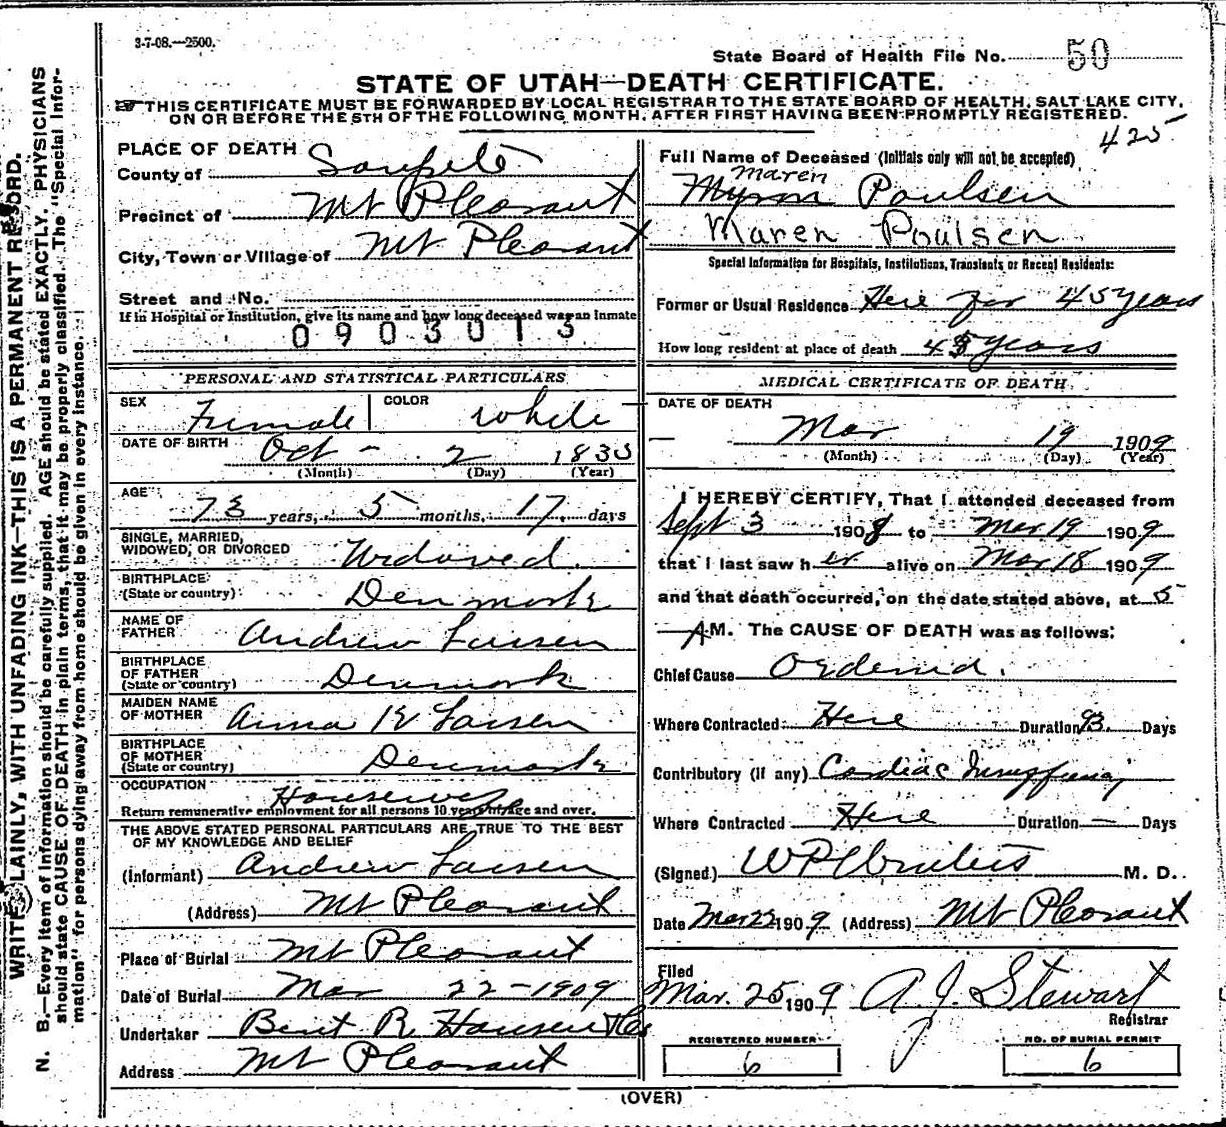 3-7-08.—2500.
State Board of Health File No. 50
STATE OF UTAH—DEATH CERTIFICATE.
THIS CERTIFICATE MUST BE FORWARDED BY LOCAL REGISTRAR TO THE STATE BOARD OF HEALTH, SALT LAKE CITY,
ON OR BEFORE THE 5TH OF THE FOLLOWING MONTH, AFTER FIRST HAVING BEEN PROMPTLY REGISTERED.
425
PLACE OF DEATH
County of Sanpete
Precinct of Mt Pleasant
City, Town or Village of Mt Pleasant
Street and No.
If in Hospital or Institution, give its name and how long deceased was an inmate
0903013
Full Name of Deceased (Initials only will not be accepted)
Maren
Myron Poulsen
Maren Poulsen
Special Information for Hospitals, Institutions, Transients or Recent Residents:
Former or Usual Residence Here for 45 years
How long resident at place of death 45 years
PERSONAL AND STATISTICAL PARTICULARS
SEX Female COLOR White
DATE OF BIRTH Oct - 2 1835
(Month) (Day) (Year)
AGE 73 years, 5 months, 17 days
SINGLE, MARRIED,
WIDOWED, OR DIVORCED Widoved
BIRTHPLACE
(State or country) Denmark
NAME OF
FATHER Andrew Larsen
BIRTHPLACE
OF FATHER
(State or country) Denmark
MAIDEN NAME
OF MOTHER Anna K Larsen
BIRTHPLACE
OF MOTHER
(State or country) Denmark
OCCUPATION Housewife
Return remunerative employment for all persons 10 years of age and over.
THE ABOVE STATED PERSONAL PARTICULARS ARE TRUE TO THE BEST
OF MY KNOWLEDGE AND BELIEF
(Informant) Andrew Larsen
(Address) Mt Pleasant
Place of Burial Mt Pleasant
Date of Burial Mar 22-1909
Undertaker Bent R Hansen
Address Mt Pleasant
MEDICAL CERTIFICATE OF DEATH
DATE OF DEATH
Mar 19 1909
(Month) (Day) (Year)
I HEREBY CERTIFY, That I attended deceased from
Sept 3 1908 to Mar 19 1909
that I last saw h er alive on Mar 18 1909
and that death occurred, on the date stated above, at 5
A M. The CAUSE OF DEATH was as follows:
Chief Cause Oedema.
Where Contracted Here Duration 93. Days
Contributory (if any) Cardiac Insufficiency
Where Contracted Here Duration — Days
(Signed) M. D.
Date Mar 22 1909 (Address) Mt Pleasant
Filed
Mar. 25 1909 A. J. Stewart
Registrar
REGISTERED NUMBER
6
NO. OF BURIAL PERMIT
6
(OVER)
WRITE PLAINLY, WITH UNFADING INK—THIS IS A PERMANENT RECORD.
N. B.—Every item of information should be carefully supplied. AGE should be stated EXACTLY. PHYSICIANS
should state CAUSE OF DEATH in plain terms, that it may be properly classified. The "Special Infor-
mation" for persons dying away from home should be given in every instance.